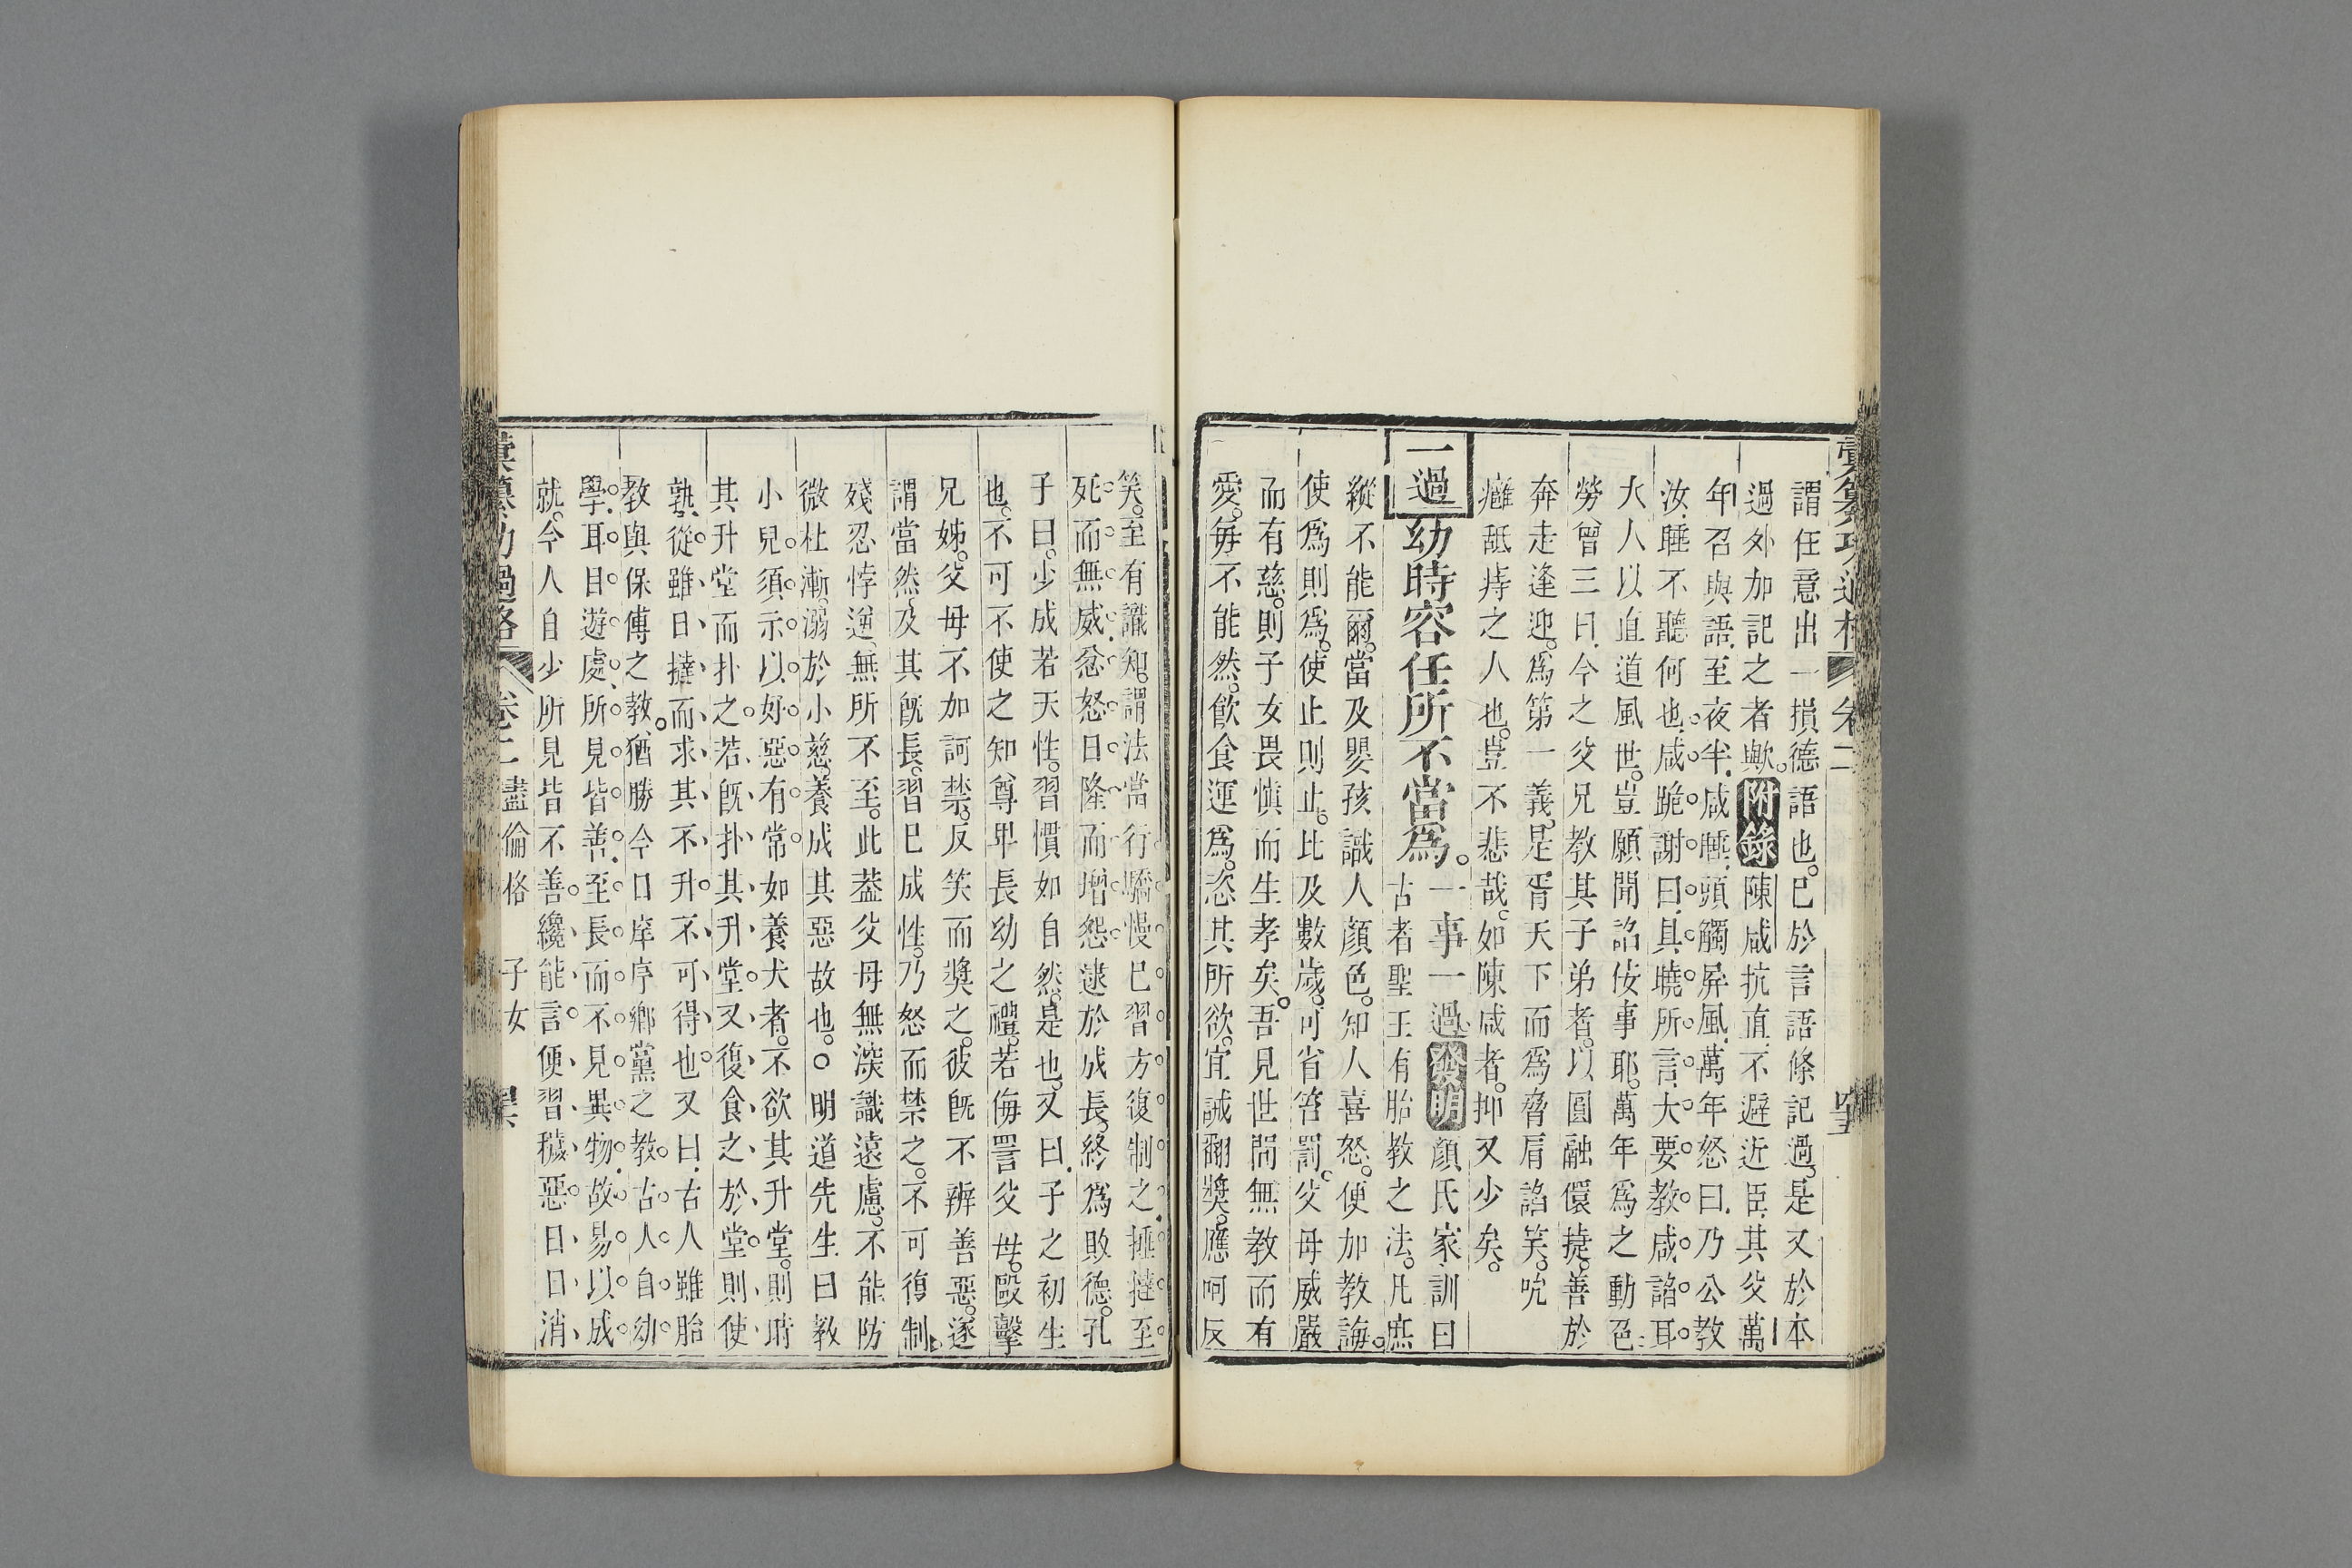 彙纂功過格 卷二 四五
謂任意出一損德語也。已於言語條記過。是又於本
過外加記之者歟。附錄陳咸抗直不避近臣。其父萬
年召與語。至夜半。咸睡。頭觸屏風。萬年怒曰。乃公教
汝。睡不聽何也。咸跪謝曰。具曉所言。大要教咸諂耳。
大人以直道風世。豈願聞諂佞事耶。萬年爲之動色。
勞曾三曰。今之父兄教其子弟者。以圓融儇捷。善於
奔走逢迎。爲第一義。是胥天下而爲脅肩諂笑。吮
癰舐痔之人也。豈不悲哉。如陳咸者。抑又少矣。
一過幼時容任所不當爲。一事一過。發明顏氏家訓曰
古者聖王有胎教之法。凡庶
縱不能爾。當及嬰孩識人顏色。知人喜怒。便加教誨。
使爲則爲。使止則止。比及數歲。可省笞罰。父母威嚴
而有慈。則子女畏慎而生孝矣。吾見世間無教而有
愛。每不能然。飲食運爲。恣其所欲。宜誡翻獎。應呵反
笑。至有識知。謂法當行。驕慢已習。方復制之。捶撻至
死而無威。忿怒日隆而增怨。逮於成長。終爲敗德。孔
子曰。少成若天性。習慣如自然。是也。又曰。子之初生
也。不可不使之知尊卑長幼之禮。若侮詈父母。毆擊
兄姊。父母不加訶禁。反笑而獎之。彼既不辨善惡。遂
謂當然。及其既長。習已成性。乃怒而禁之。不可復制。
殘忍悖逆。無所不至。此葢父母無深識遠慮。不能防
微杜漸。溺於小慈。養成其惡故也。○明道先生曰教
小兒須示以好惡有常。如養犬者。不欲其升堂。則時
其升堂而扑之。若既扑其升堂。又復食之於堂。則使
孰從。雖日撻而求其不升。不可得也。又曰。古人雖胎
教與保傅之教。猶勝今日庠序鄉黨之教。古人自幼
學。耳目遊處。所見皆善。至長而不見異物。故易以成
就。今人自少所見皆不善。纔能言。便習穢惡。日日消
彙纂功過格 卷二 盡倫格 子女